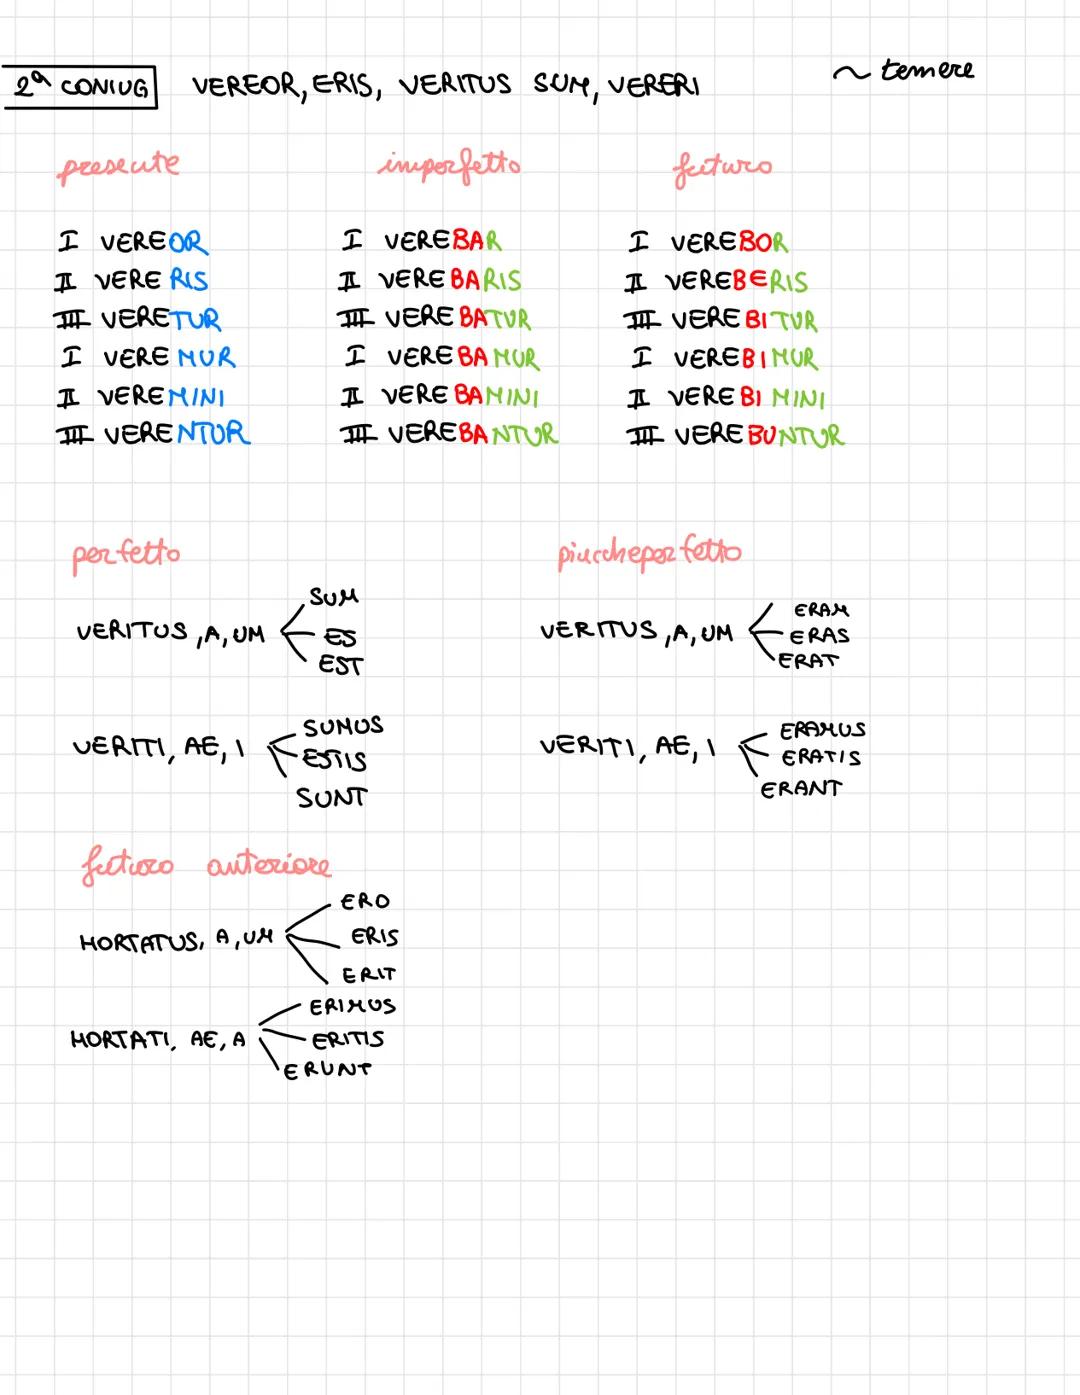 2ª CONIUG VEREOR, ERIS, VERITUS SUM, VERERI ~ temere
presente imperfetto futuro
I VEREOR I VEREBAR I VEREBOR
II VERERIS II VEREBARIS II VEREBERIS
III VERETUR III VEREBATUR III VEREBITUR
I VEREMUR I VEREBAMUR I VEREBIMUR
II VEREMINI II VEREBAMINI II VEREBIMINI
III VERENTUR III VEREBANTUR III VEREBUNTUR
perfetto piuccheperfetto
SUM ERAM
VERITUS, A, UM ES VERITUS, A, UM ERAS
EST ERAT
SUMUS ERAMUS
VERITI, AE, I ESTIS VERITI, AE, I ERATIS
SUNT ERANT
futuro anteriore
ERO
HORTATUS, A, UM ERIS
ERIT
ERIMUS
HORTATI, AE, A ERITIS
ERUNT